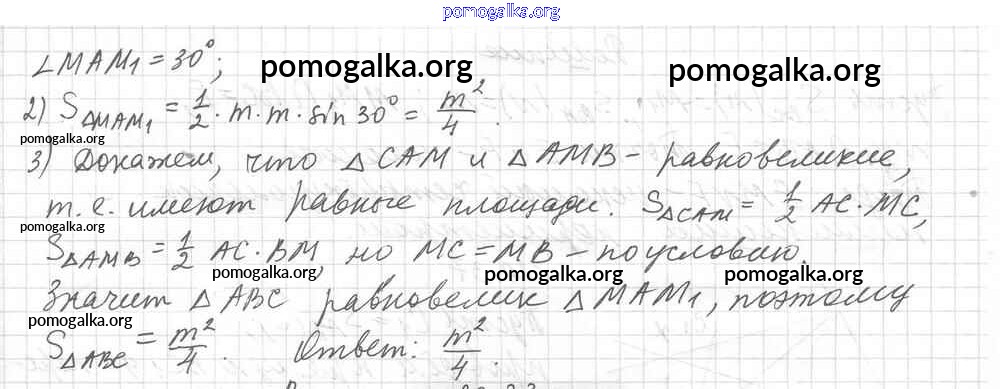 pomogalka.org
∠MAM₁ = 30°;
pomogalka.org pomogalka.org
2) S△MAM₁ = 1/2 · m · m · sin 30° = m²/4.
pomogalka.org
3) Докажем, что △CAM и △AMB – равновеликие,
т.е. имеют равные площади. S△CAM = 1/2 AC · MC,
pomogalka.org
S△AMB = 1/2 AC · BM, но MC = MB – по условию.
pomogalka.org pomogalka.org pomogalka.org
Значит △ABC равновелик △MAM₁, поэтому
pomogalka.org
S△ABC = m²/4. Ответ: m²/4.